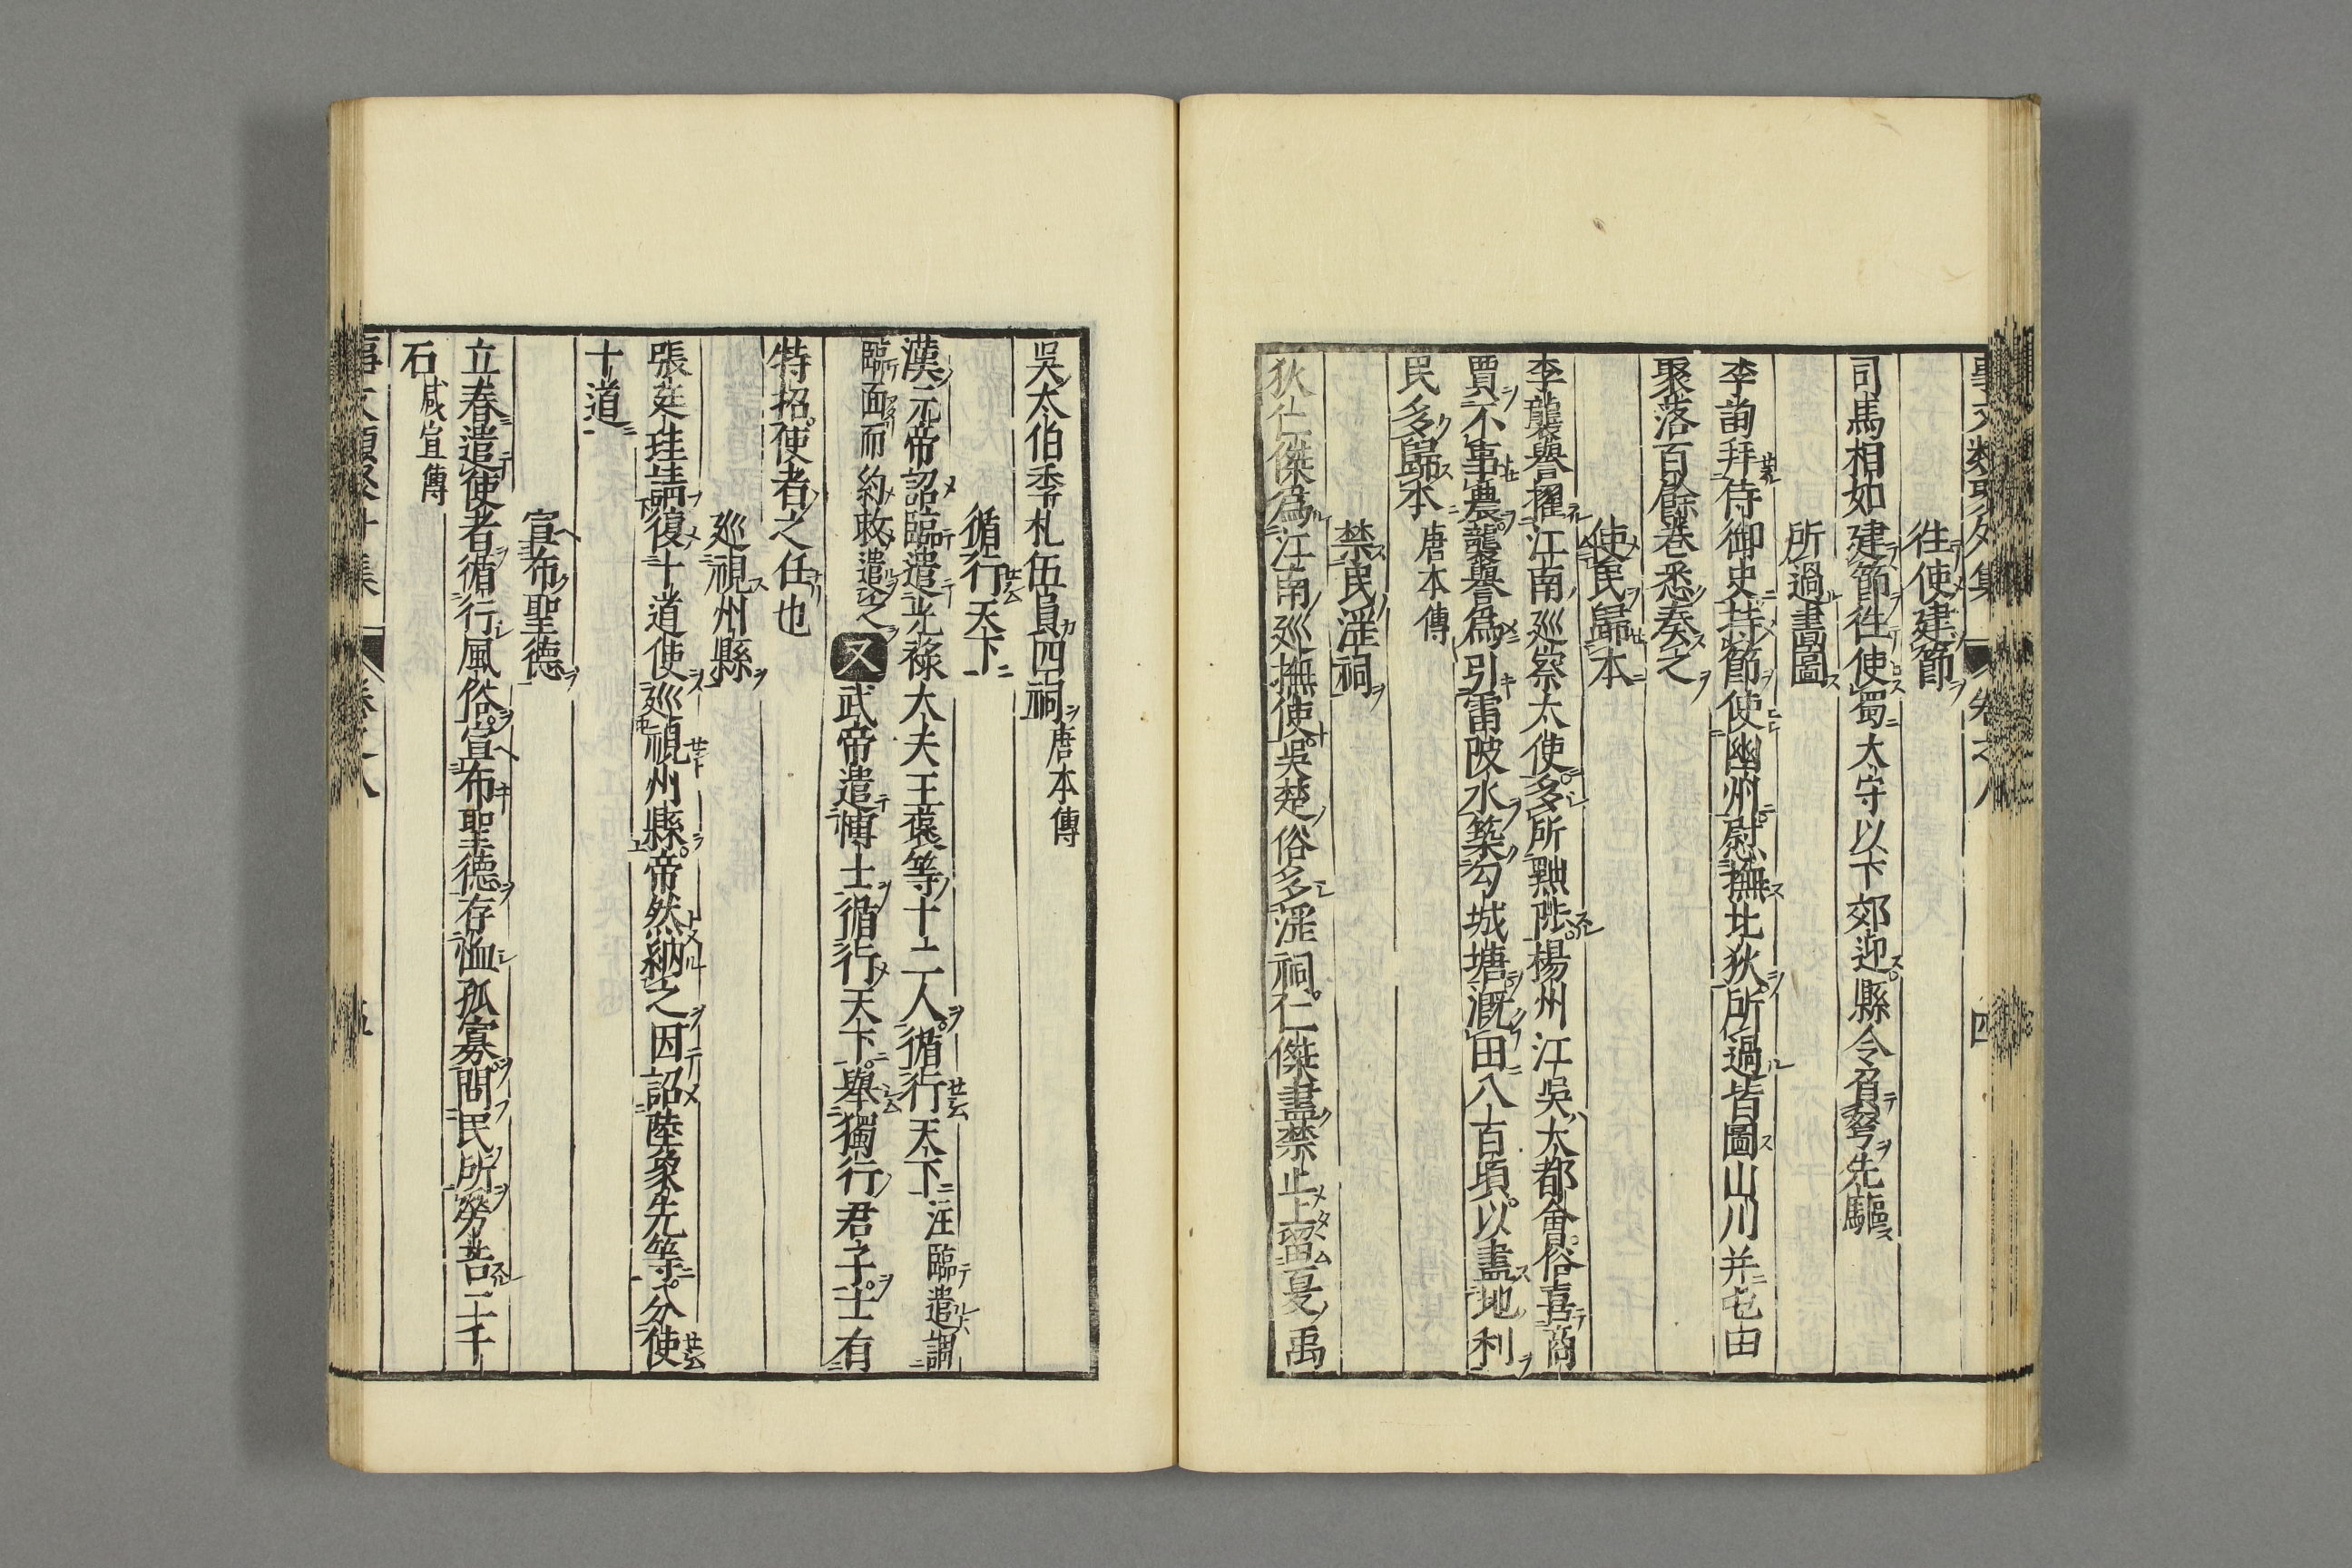 事文類聚外集 卷之八 四
往使建節
司馬相如建節往使蜀太守以下郊迎縣令負弩先驅
所過畫圖
李畬拜侍御史持節使幽州慰撫北狄所過皆圖山川并屯田
聚落百餘卷悉奏之
使民歸本
李襲譽擢江南巡察大使多所黜陟楊州江吳大都會俗喜商
賈不事農襲譽爲引雷陂水築勾城塘漑田八百頃以盡地利
民多歸本唐本傳
禁民淫祠
狄仁傑爲江南巡撫使吳楚俗多淫祠仁傑盡禁止止畱夏禹
吳太伯季札伍員四祠唐本傳
循行天下
漢元帝詔臨遣光祿大夫王襃等十二人循行天下注臨遣謂
臨面而約敕遣之又武帝遣博士循行天下舉獨行君子士有
特招使者之任也
巡視州縣
張廷珪請復十道使巡視州縣帝然納之因詔陸象先等分使
十道
宣布聖德
立春遣使者循行風俗宣布聖德存恤孤寡問民所勞告二千
石咸宣傳
事文類聚外集 卷之八 五